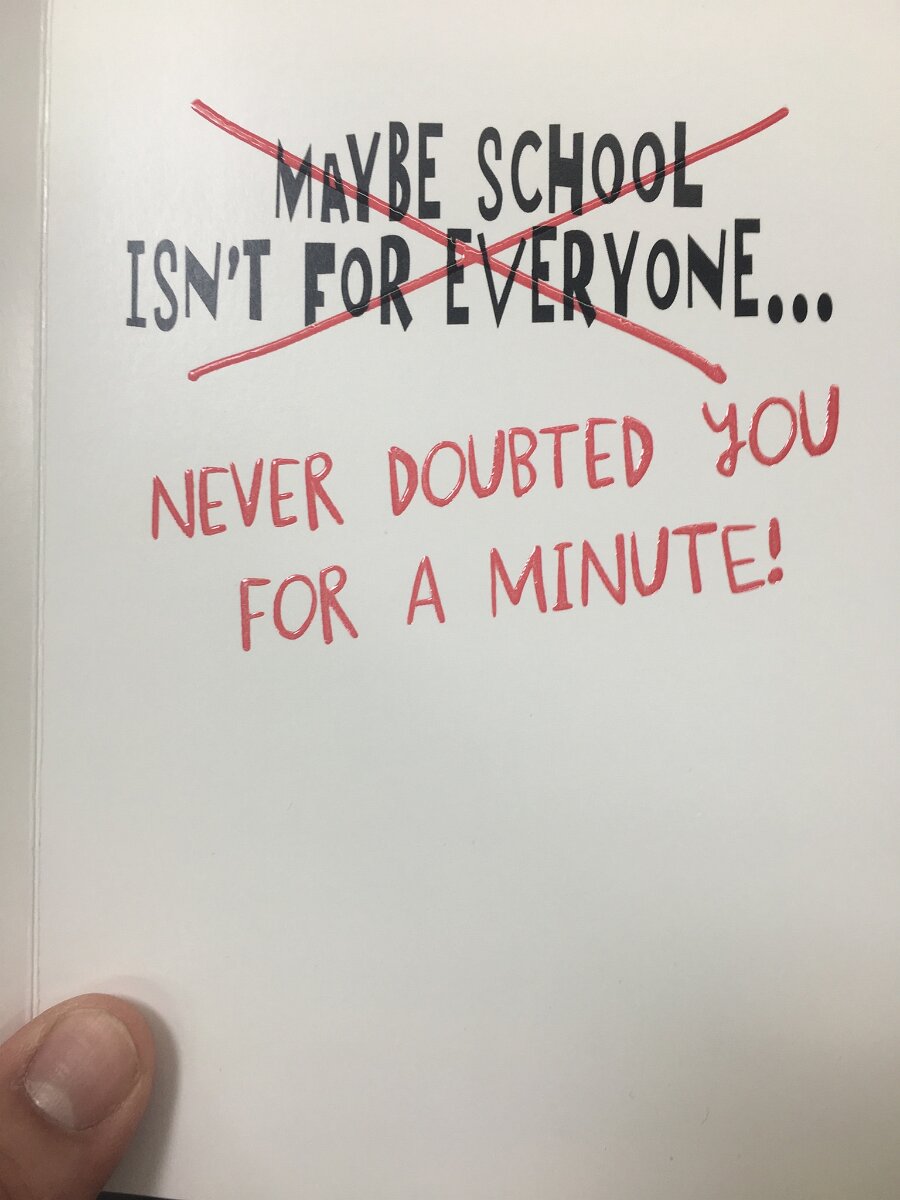 MAYBE SCHOOL
ISN'T FOR EVERYONE...
NEVER DOUBTED YOU
FOR A MINUTE!